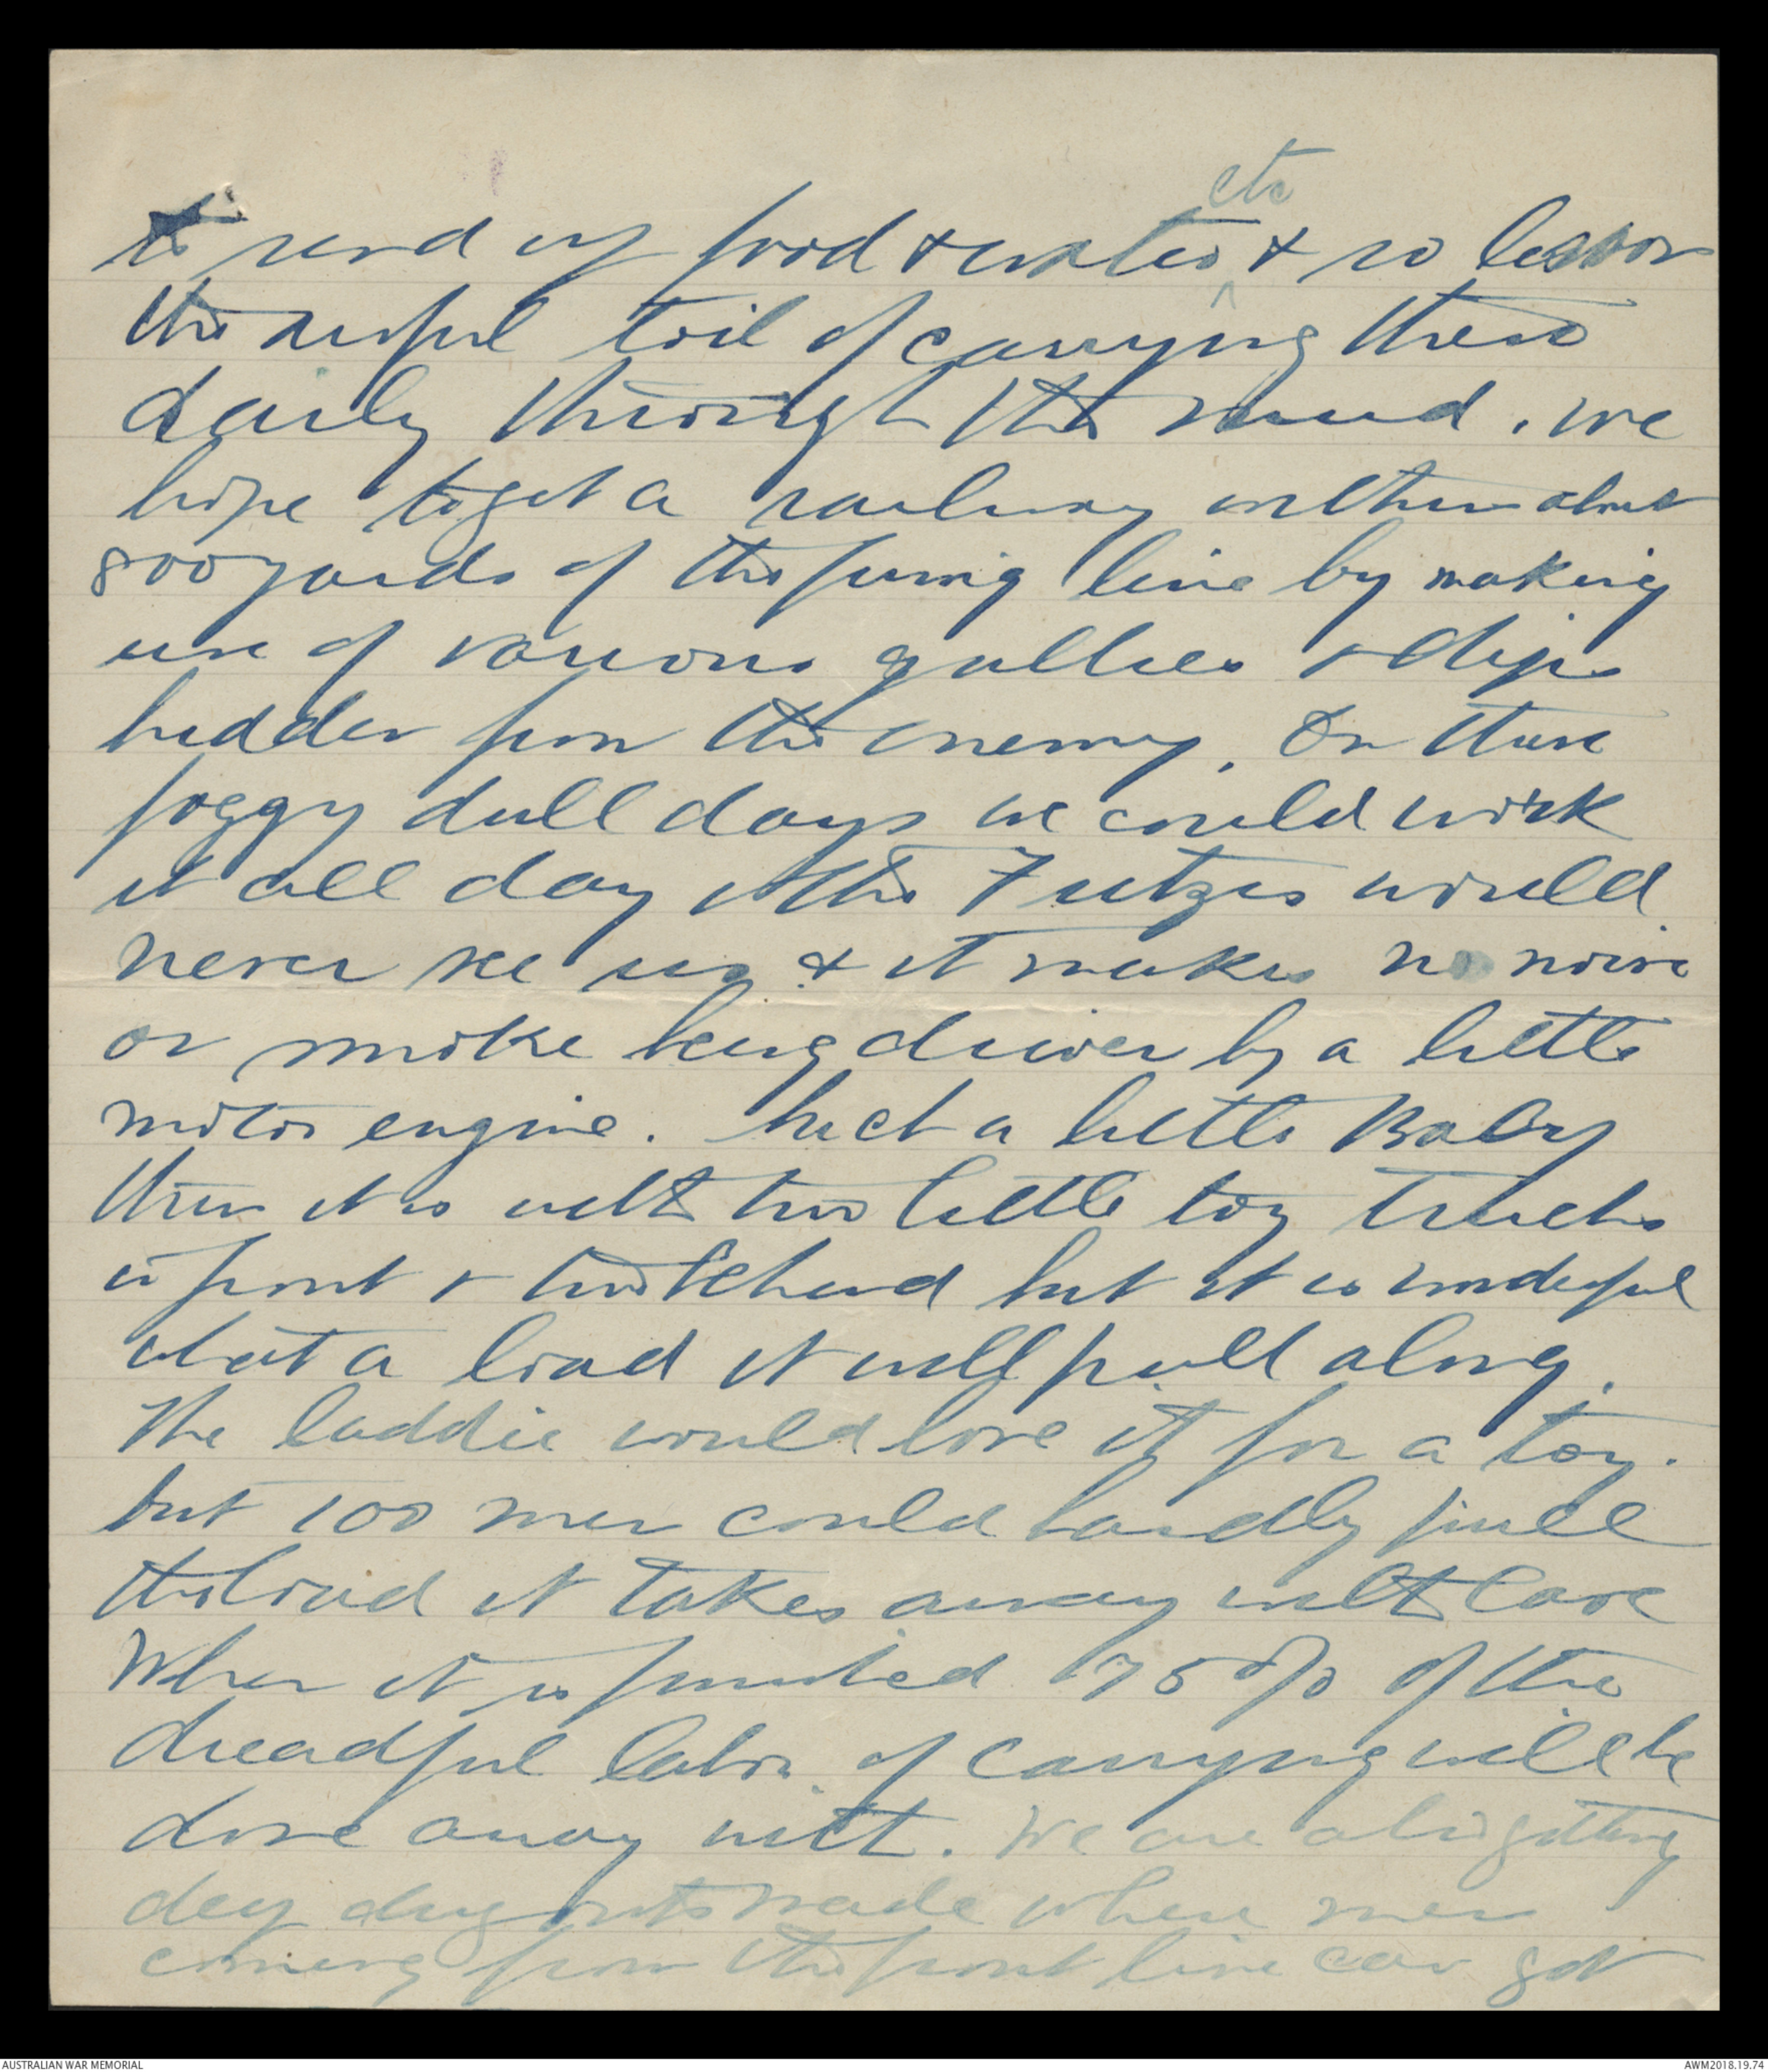 to send up food & water etc & so lesson
the awful toil of carrying these
daily through the mud. we
hope to get a railway within about
800 yards of the firing line by making
use of various gullies & dips
hidden from the enemy. On these
foggy dull days we could work
it all day & the Fritzes would
never see us & it makes no noise
or smoke being driven by a little
motor engine. Such a little Baby
thing it is with two little toy trucks
in front & two behind but it is wonderful
what a load it will pull along.
The laddie would love it for a toy.
but 100 men could hardly pull
the load it takes away with ease
When it is finished 75% of the
dreadful labor of carrying will be
done away with. We are also getting
deep dug outs made where men
coming from the front line can get
AUSTRALIAN WAR MEMORIAL
AWM2018.19.74